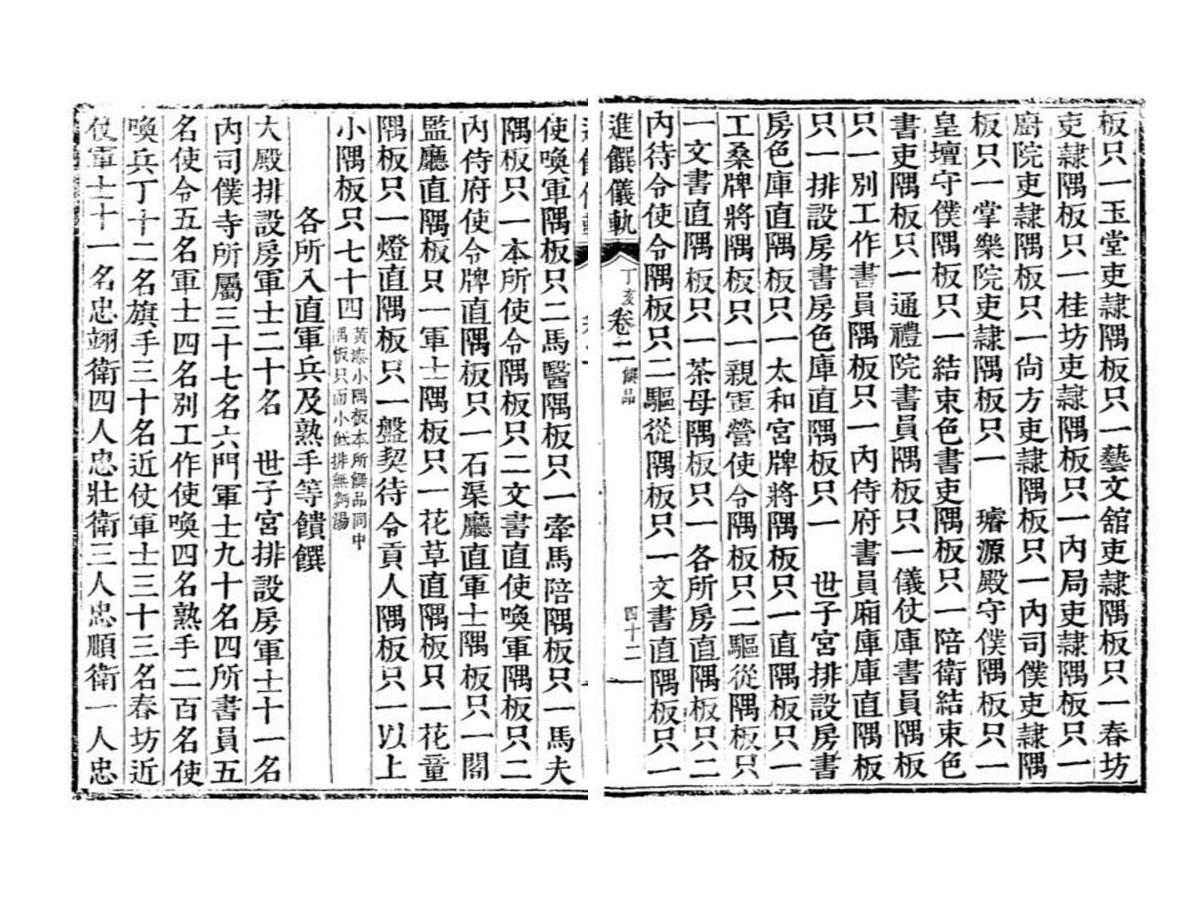 板只一玉堂吏隷隅板只一藝文舘吏隷隅板只一春坊
吏隷隅板只一桂坊吏隷隅板只一內局吏隷隅板只一
廚院吏隷隅板只一尙方吏隷隅板只一內司僕吏隷隅
板只一掌樂院吏隷隅板只一　璿源殿守僕隅板只一
皇壇守僕隅板只一結束色書吏隅板只一陪衛結束色
書吏隅板只一通禮院書員隅板只一儀仗庫書員隅板
只一別工作書員隅板只一內侍府書員廂庫庫直隅板
只一排設房書房色庫直隅板只一　世子宮排設房書
房色庫直隅板只一太和宮牌將隅板只一直隅板只一
工桑牌將隅板只一親軍營使令隅板只二驅從隅板只
一文書直隅板只一茶母隅板只一各所房直隅板只二
內待令使令隅板只二驅從隅板只一文書直隅板只一
進饌儀軌 丁亥 卷二 饌品 四十二
使喚軍隅板只二馬醫隅板只一牽馬陪隅板只一馬夫
隅板只一本所使令隅板只二文書直使喚軍隅板只二
內侍府使令牌直隅板只一石渠廳直軍士隅板只一閣
監廳直隅板只一軍士隅板只一花草直隅板只一花童
隅板只一燈直隅板只一盤契待令貢人隅板只一以上
小隅板只七十四 黃漆小隅板本所饌品同中
隅板只而小低排無麪湯
各所入直軍兵及熟手等饋饌
大殿排設房軍士二十名　世子宮排設房軍士十一名
內司僕寺所屬三十七名六門軍士九十名四所書員五
名使令五名軍士四名別工作使喚四名熟手二百名使
喚兵丁十二名旗手三十名近仗軍士三十三名春坊近
仗軍士十一名忠翊衛四人忠壯衛三人忠順衛一人忠